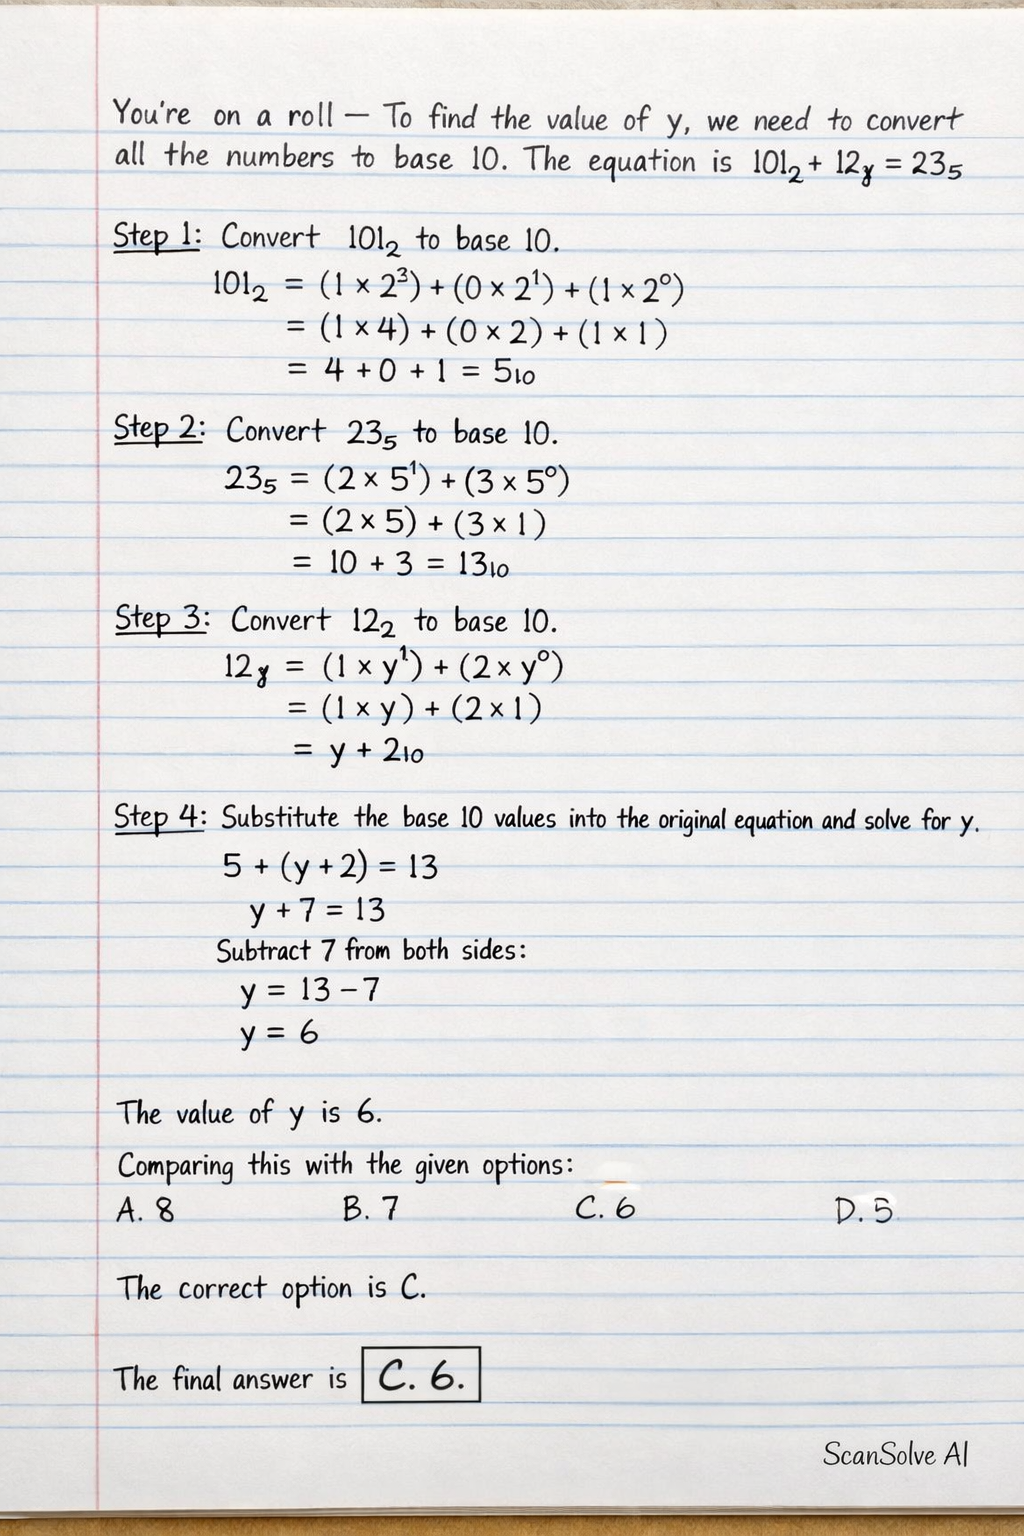 You're on a roll — To find the value of y, we need to convert
all the numbers to base 10. The equation is 101₂ + 12ᵧ = 23₅
Step 1: Convert 101₂ to base 10.
101₂ = (1 × 2³) + (0 × 2¹) + (1 × 2⁰)
= (1 × 4) + (0 × 2) + (1 × 1)
= 4 + 0 + 1 = 5₁₀
Step 2: Convert 23₅ to base 10.
23₅ = (2 × 5¹) + (3 × 5⁰)
= (2 × 5) + (3 × 1)
= 10 + 3 = 13₁₀
Step 3: Convert 12₂ to base 10.
12ᵧ = (1 × y¹) + (2 × y⁰)
= (1 × y) + (2 × 1)
= y + 2₁₀
Step 4: Substitute the base 10 values into the original equation and solve for y.
5 + (y + 2) = 13
y + 7 = 13
Subtract 7 from both sides:
y = 13 – 7
y = 6
The value of y is 6.
Comparing this with the given options:
A. 8 B. 7 C. 6 D. 5
The correct option is C.
The final answer is C. 6.
ScanSolve AI